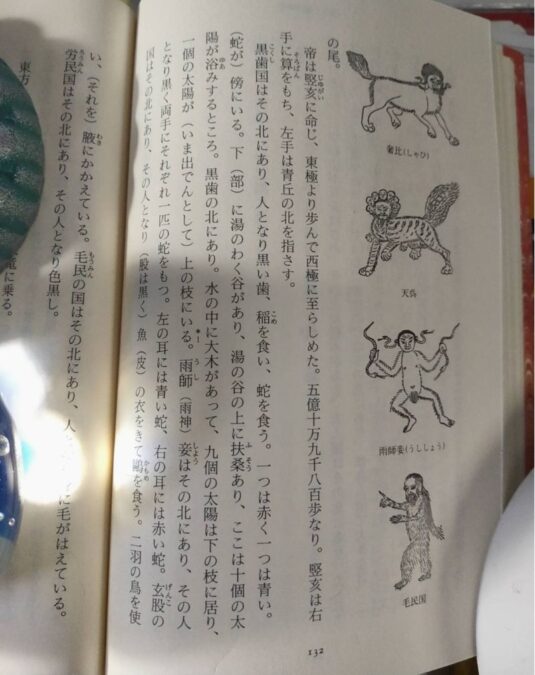 奢比(しゃひ)
天呉
雨師妾(うししょう)
毛民国
の尾。
帝は竪亥に命じ、東極より歩んで西極に至らしめた。五億十万九千八百歩なり。竪亥は右
手に算をもち、左手は青丘の北を指さす。
黒歯国はその北にあり、人となり黒い歯、稲を食い、蛇を食う。一つは赤く一つは青い。
（蛇が）傍にいる。下（部）に湯のわく谷があり、湯の谷の上に扶桑あり、ここは十個の太
陽が浴みするところ。黒歯の北にあり。水の中に大木があって、九個の太陽は下の枝に居り、
一個の太陽が（いま出でんとして）上の枝にいる。雨師（雨神）妾はその北にあり、その人
となり黒く両手にそれぞれ一匹の蛇をもつ。左の耳には青い蛇、右の耳には赤い蛇。玄股の
国はその北にあり、その人となり（股は黒く）魚（皮）の衣をきて鷗を食う。二羽の鳥を使
132
い、（それを）腋にかかえている。毛民の国はその北にあり、人 に毛がはえている。
労民国はその北にあり、その人となり色黒し。
東方 に乗る。